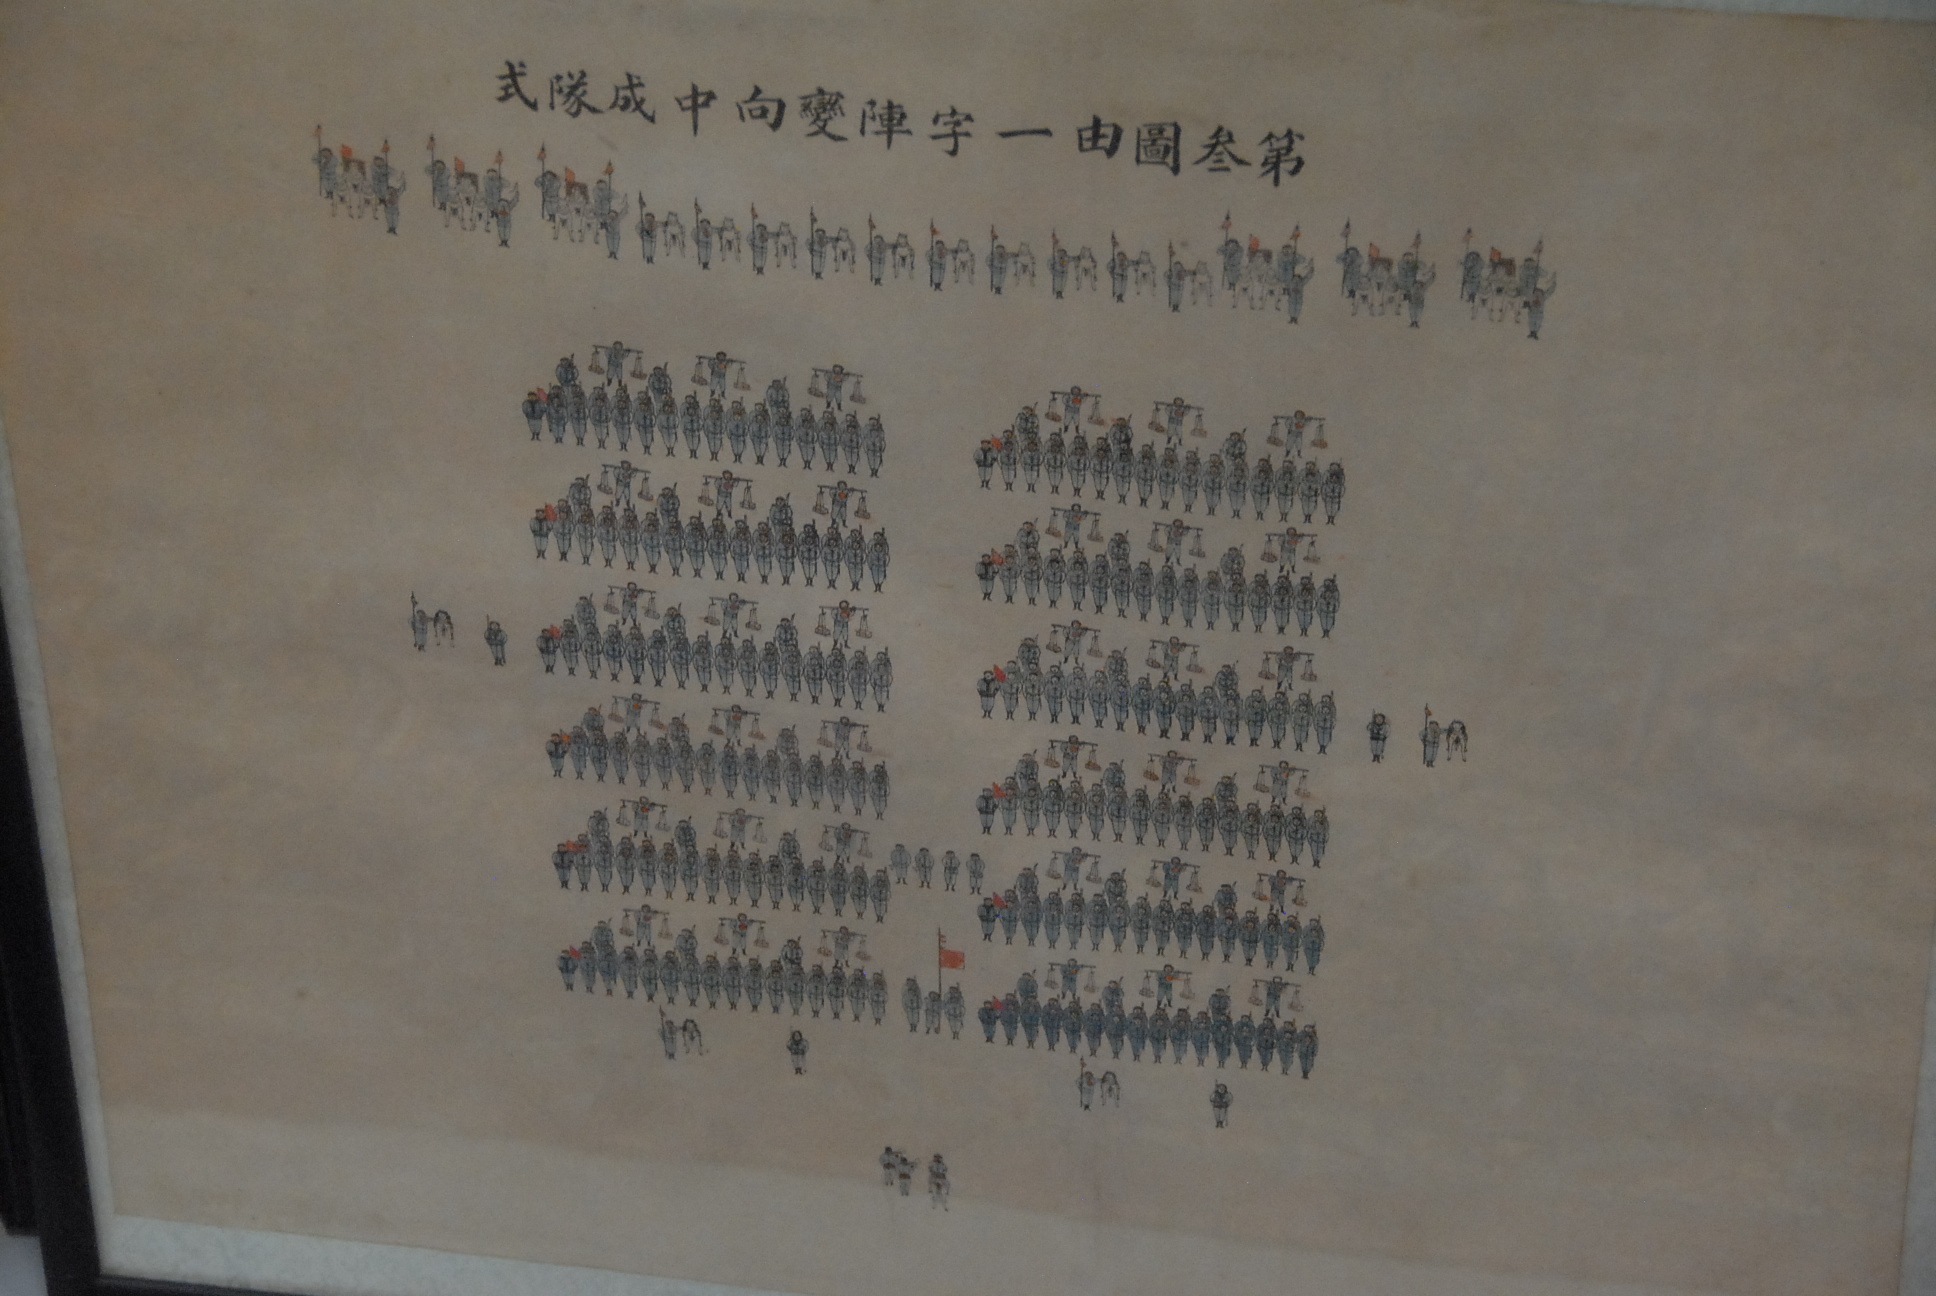 第叁圖由一字陣變向中成隊式